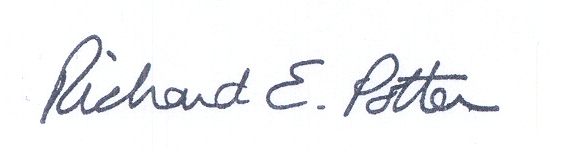 Richard E. Potter